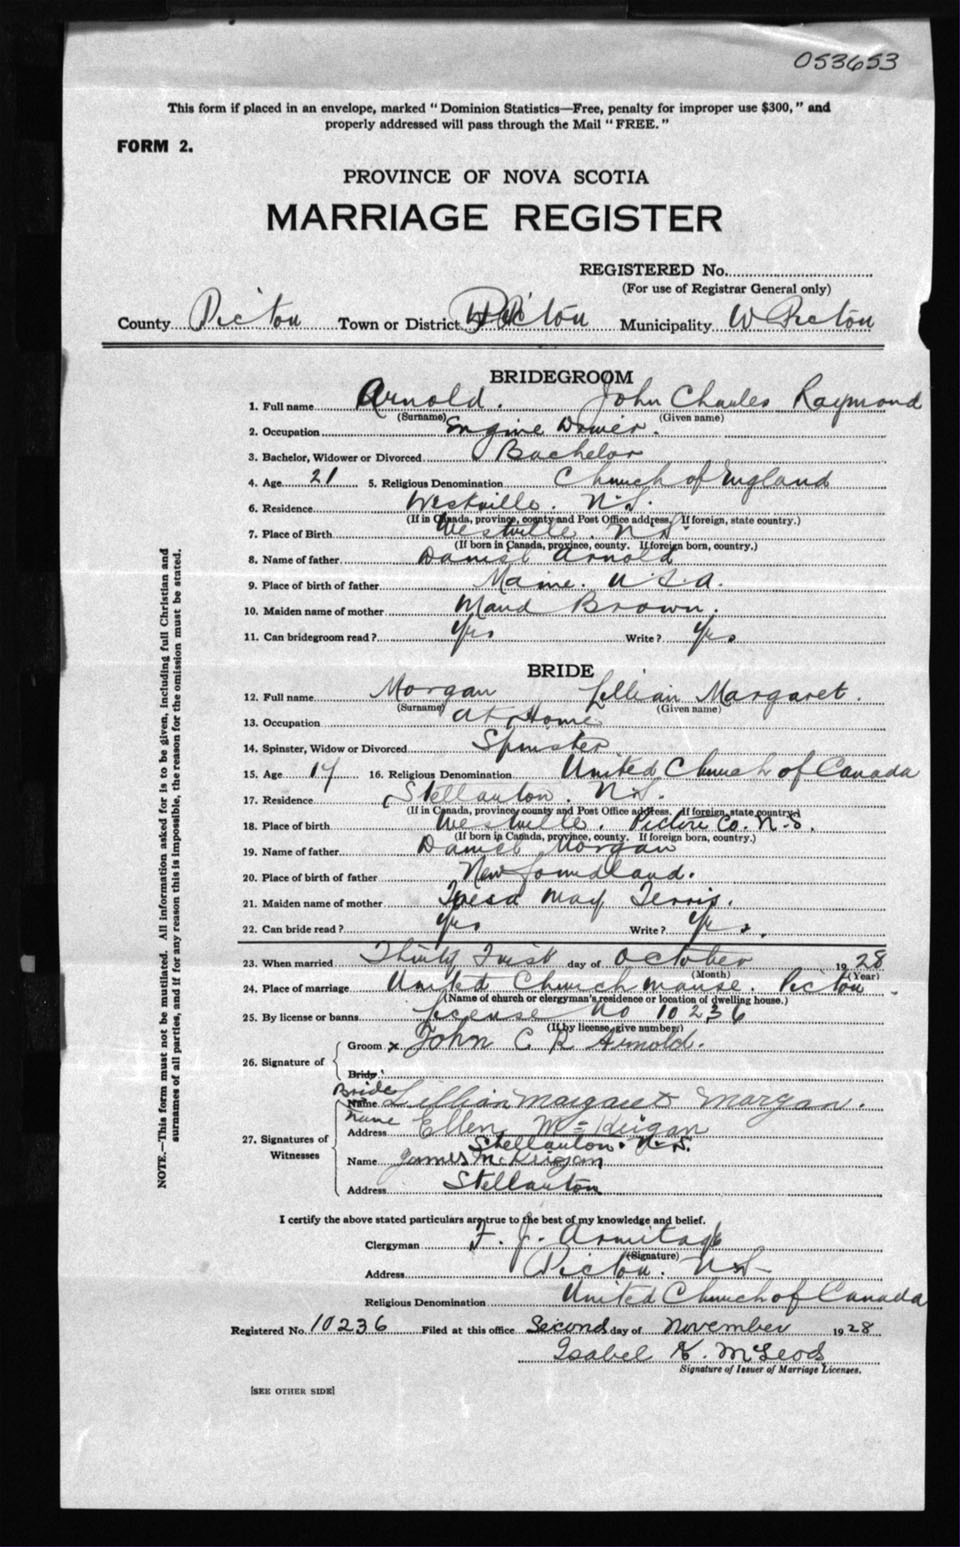 053653
This form if placed in an envelope, marked "Dominion Statistics—Free, penalty for improper use $300," and
properly addressed will pass through the Mail "FREE."
FORM 2.
PROVINCE OF NOVA SCOTIA
MARRIAGE REGISTER
REGISTERED No.
(For use of Registrar General only)
County Pictou Town or District Pictou Municipality W Pictou
BRIDEGROOM
1. Full name Arnold. John Charles Raymond
(Surname) (Given name)
2. Occupation Engine Driver.
3. Bachelor, Widower or Divorced Bachelor
4. Age 21 5. Religious Denomination Church of England
6. Residence Westville. N.S.
(If in Canada, province, county and Post Office address. If foreign, state country.)
7. Place of Birth Westville. N.S.
(If born in Canada, province, county. If foreign born, country.)
8. Name of father Daniel Arnold
9. Place of birth of father Maine. U.S.A.
10. Maiden name of mother Maud Brown.
11. Can bridegroom read? Yes Write? Yes
BRIDE
12. Full name Morgan Lillian Margaret.
(Surname) (Given name)
13. Occupation At Home
14. Spinster, Widow or Divorced Spinster
15. Age 16. Religious Denomination United Church of Canada
17. Residence Stellarton. N.S.
(If in Canada, province county and Post Office address. If foreign, state country)
18. Place of birth Westville. Pictou Co. N.S.
(If born in Canada, province, county. If foreign born, country.)
19. Name of father Daniel Morgan
20. Place of birth of father Newfoundland.
21. Maiden name of mother May
22. Can bride read? Yes Write? Yes.
23. When married Thirty First day of October 1928
(Month) (Year)
24. Place of marriage United Church manse. Pictou
(Name of church or clergyman's residence or location of dwelling house.)
25. By license or banns License No 10236
(If by license, give number)
26. Signature of Groom x John C R Arnold.
Bride
Bride Name Lillian Margaret Morgan.
27. Signatures of Witnesses
Name Address Ellen McKeigan
Stellarton. N.S.
Name James McKeigan
Address Stellarton
I certify the above stated particulars are true to the best of my knowledge and belief.
Clergyman F. J. Armitage
(Signature)
Address Pictou. N.S.
Religious Denomination United Church of Canada
Registered No. 10236 Filed at this office Second day of November 1928
Isabel K. McLeod
Signature of Issuer of Marriage Licenses.
[SEE OTHER SIDE]
NOTE.—This form must not be mutilated. All information asked for is to be given, including full Christian and
surnames of all parties, and if for any reason this is impossible, the reason for the omission must be stated.